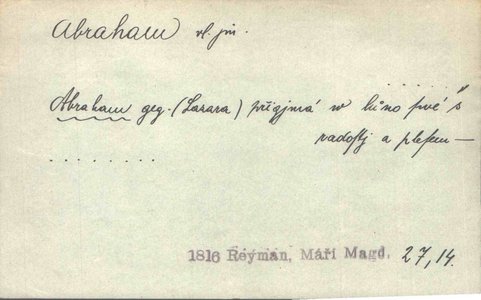 Abraham vl. jm.
Abraham geg. (Lazara) přigjmá w lůno své s
radostj a plesem —
1816 Reyman, Máří Magd. 27,14.